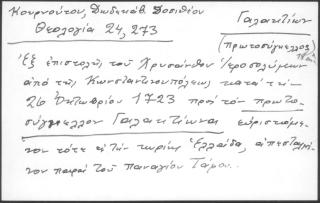 Κουρνούτος, Δωδεκάβ. Δοσιθέου
Θεολογία 24, 273
Γαλακτίων
(πρωτοσύγκελλος)
Ἐξ ἐπιστολῆς τοῦ Χρυσάνθου Ἱεροσολύμων
ἀπὸ τῆς Κωνσταντινουπόλεως κατὰ τὴν
26 Ὀκτωβρίου 1723 πρὸς τὸν πρωτο-
σύγκελλον Γαλακτίωνα εὑρισκόμε-
νον τότε εἰς τὴν κυρίως Ἑλλάδα, ἀπεσταλμέ-
νον παρὰ τοῦ Παναγίου Τάφου..